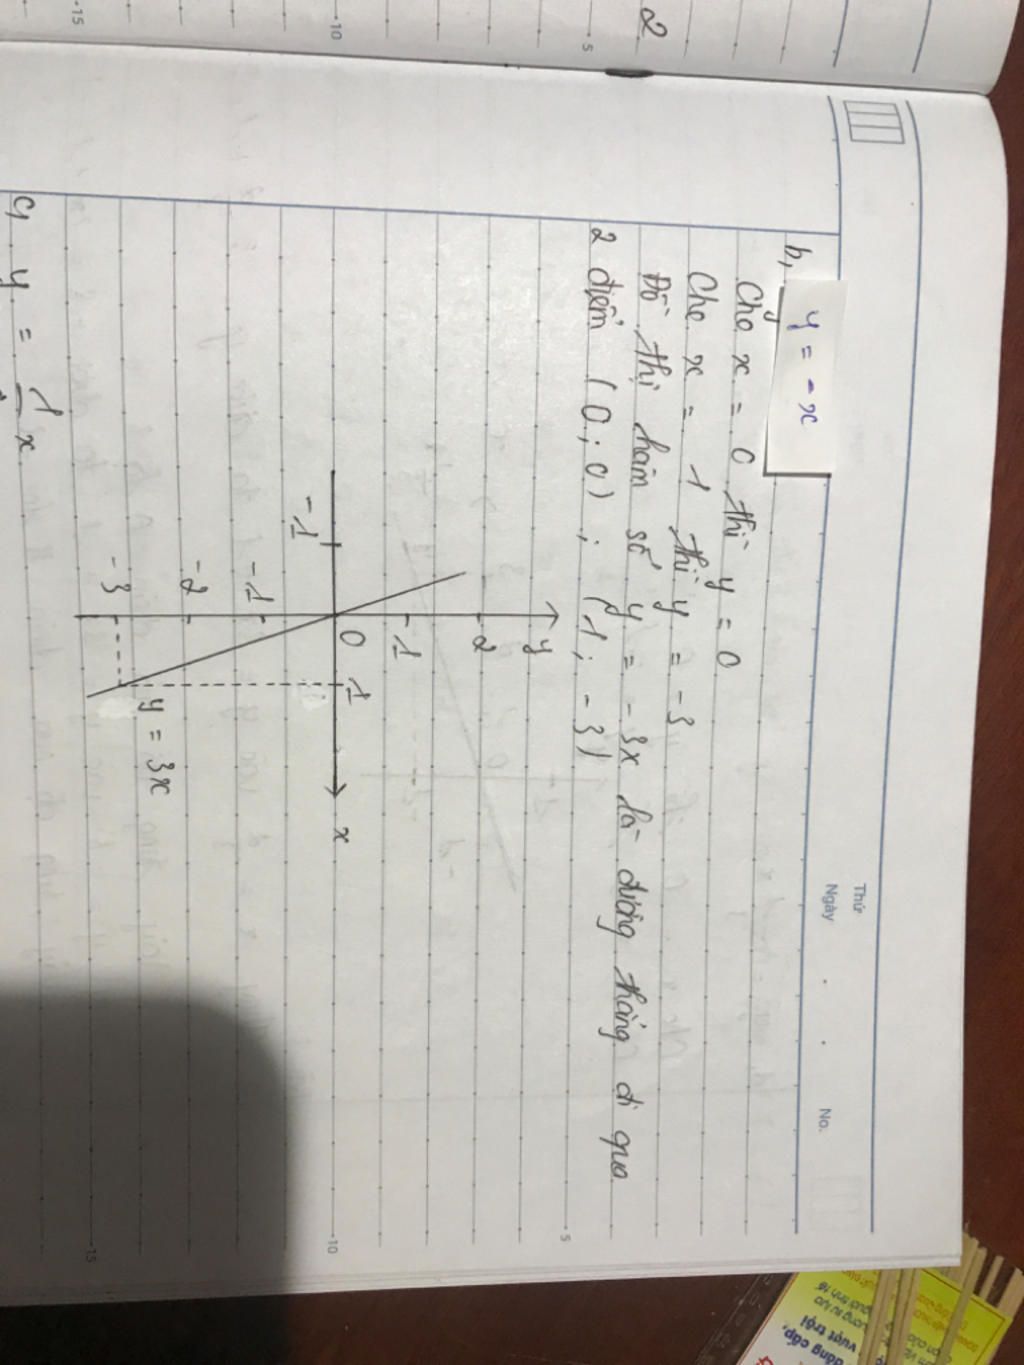 2
Thứ
Ngày
No.
b, y = -x
Cho x = 0 thì y = 0
Cho x = 1 thì y = -3
Đồ thị hàm số y = -3x là đường thẳng đi qua
2 điểm (0; 0) ; (1; -3)
5
y
2
1
-1
0
1
x
10
-1
-2
-3
y = 3x
15
c, y = 1 x
5
10
15
đẳng cấp,
vượt trội